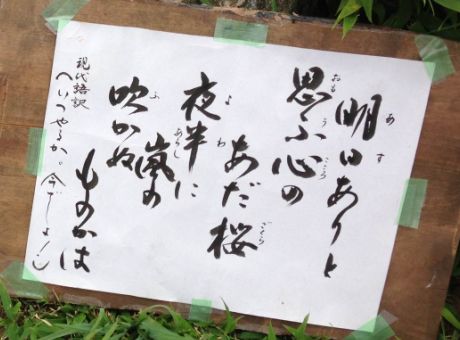 明日ありと
あす
思ふ心の
おもうこころ
あだ桜
ざくら
夜半に
よわ
嵐の
あらし
吹かぬ
ふ
ものかは
現代語訳
〈いつやるか。今でしょ!〉